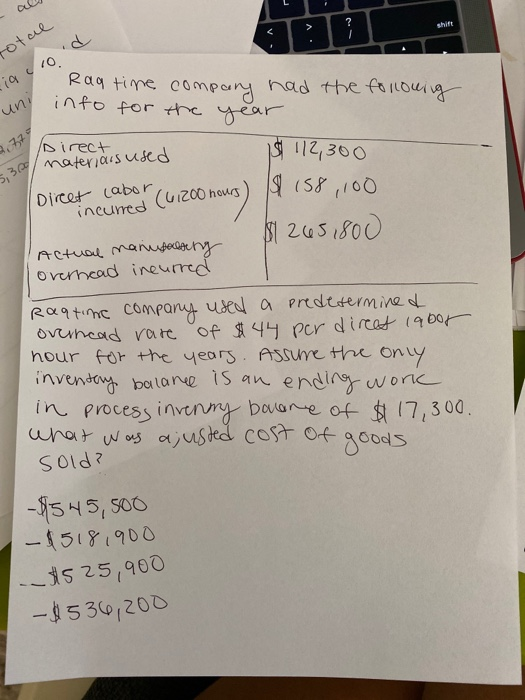 al
total
d
ia
uni
5,300
<
>
?
/
shift
10.
Ragtime company had the following
info for the year
Direct
materials used
$ 112,300
Direct Labor
incurred (6,200 hours)
$ 158,100
Actual manufacturing
overhead incurred
$ 265,800
Ragtime company used a predetermined
overhead rate of $44 per direct labor
hour for the years. Assume the only
inventory balance is an ending work
in process invenry balance of $17,300.
what was ajusted cost of goods
sold?
-$545,500
-$518,900
-$525,900
-$536,200